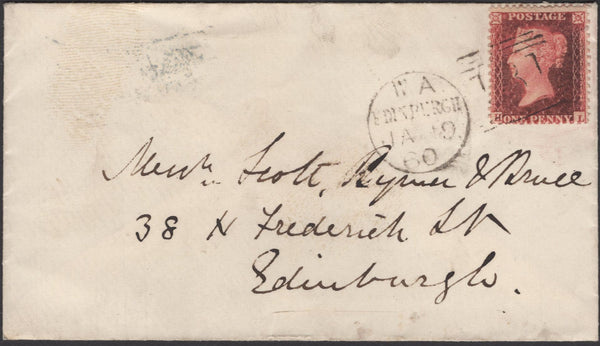 POSTAGE
ONE PENNY
EDINBURGH
JA 19
60
Messrs Scott, Rymer & Bruce
38 N Frederick St
Edinburgh.